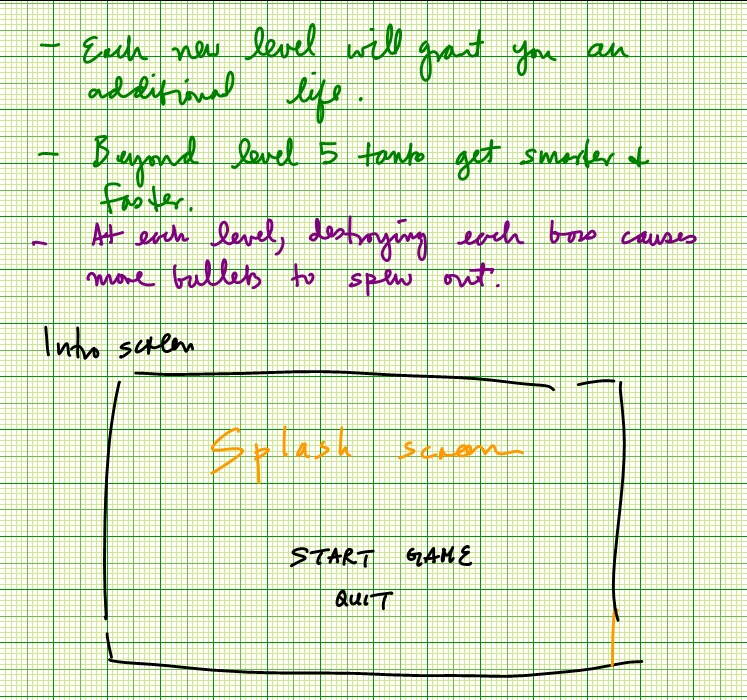 - Each new level will grant you an
additional life.
- Beyond level 5 tanks get smarter &
faster.
- At each level, destroying each boss causes
more bullets to spew out.
Intro screen
Splash screen
START GAME
QUIT